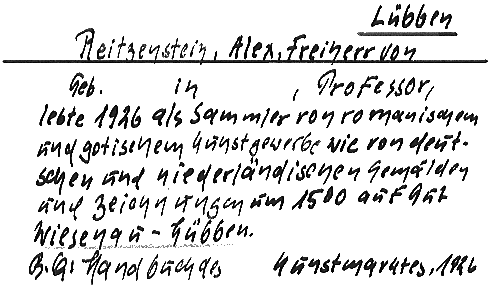 Lübben
Reitzenstein, Alex, Freiherr von
Geb. in , Professor,
lebte 1926 als Sammler von romanischem
und gotischem Kunstgewerbe wie von deut-
schen und niederländischen Gemälden
und Zeichnungen um 1500 auf Gut
Wiesenau - Lübben.
B.Q: Handbuch des Kunstmarktes, 1926